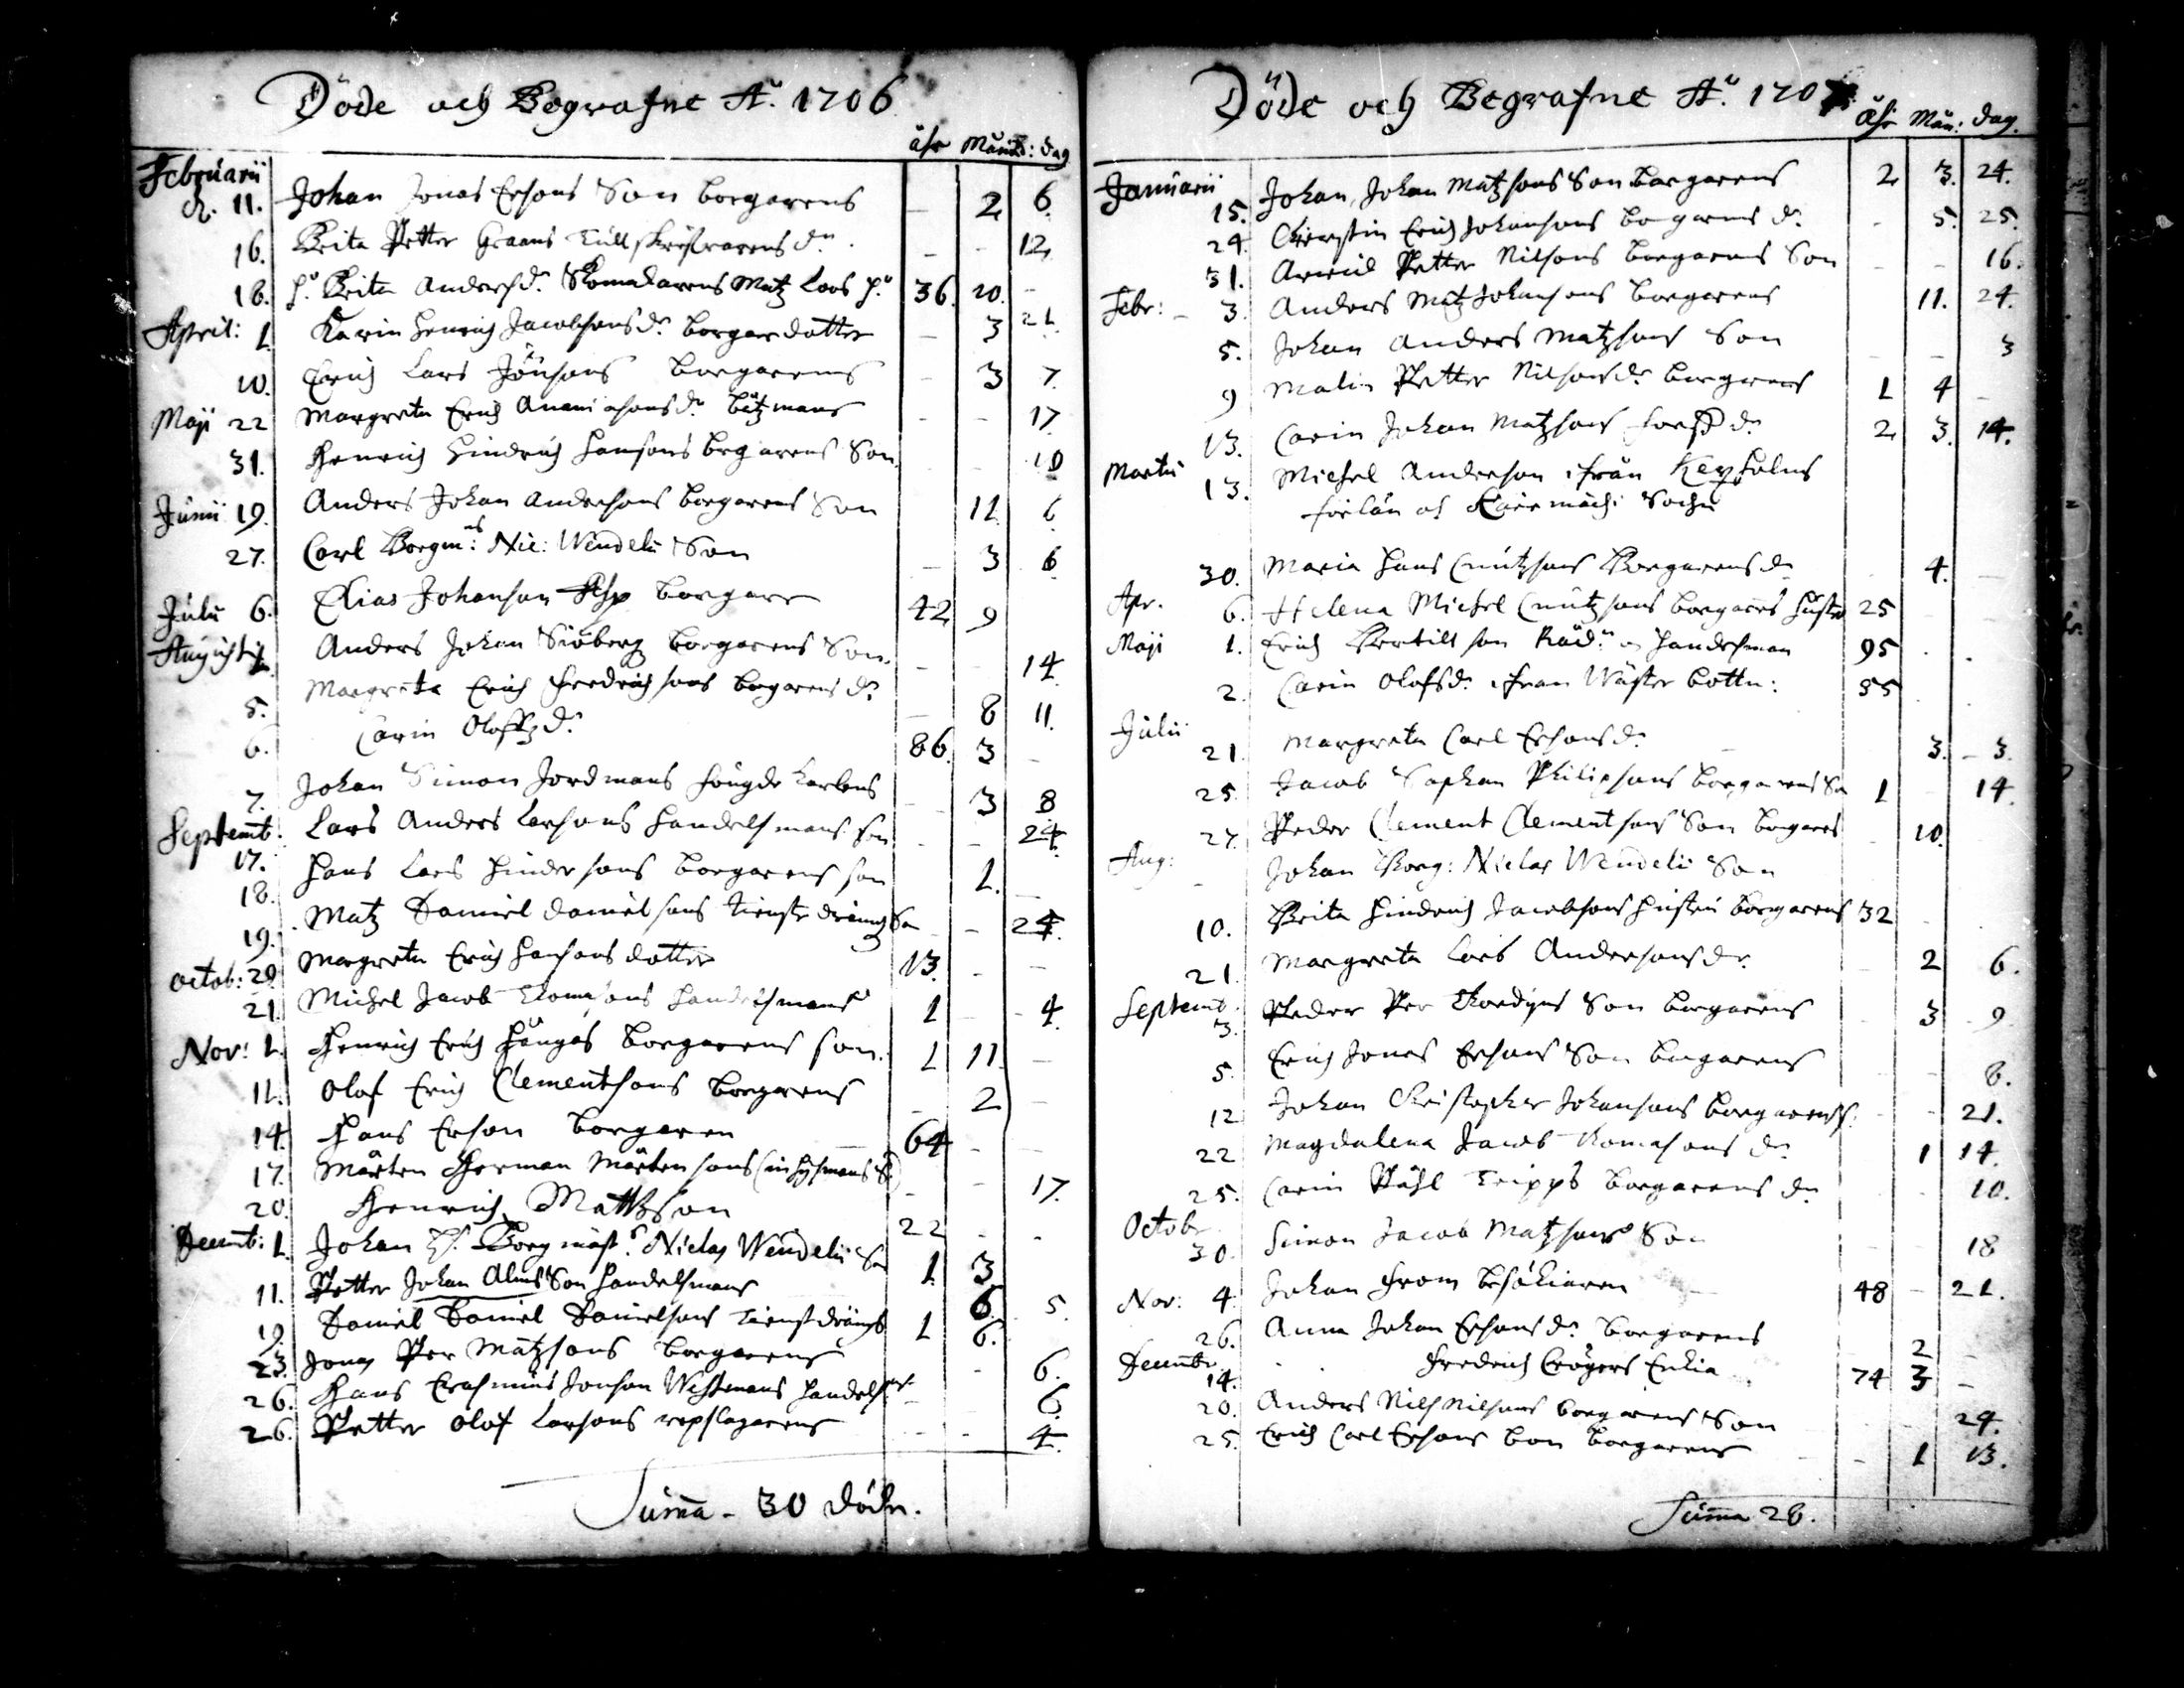 Döde och Begrafne Ao. 1706
åhr Månad: dag
Februarii
d. 11. Johan Jonas Ersons Son borgarens – 2 6.
16. Brita Petter Graans dr. – – 12
18. h. Brita Andersdr. Skomakarens Matz Loos h. 36. 10. –
April: 1. Karin Henrich Jacobsons dr. borgardotter – 3 21.
10. Erich Lars Jönsons borgarens – 3 7.
Maji 22 Margreta Erich Ananiasons dr. båtzmans – – 17
31. Henrich Hindrich Hansons borgarens Son – – 10
Junii 19. Anders Johan Andersons borgarens Son 11 6.
27. Carl Borgm: Nic: Wendelii Son – 3 6
Julii 6. Elias Johanson borgare 42 9
Augusti 1. Anders Johan Siöberg borgarens Son – – 14
5. Margreta Erich Fredrichsons borgarens dr. – 8 11.
6. Carin Oloffzdr. 86 3 –
7. Johan Simon Jordmans – 3 8
Septemb: 17. Lars Anders Larsons handelsmans son – – 24.
18. Hans Lars Hindersons borgarens son 1. –
19. Matz Daniel Danielsons tienste drängs So – – 24.
Octob: 20. Margreta Erich Hansons dotter 13. – –
21. Michel Jacob Thomasons handelsmans 1 – 4.
Nov: 1. Henrich Erich Hångas borgarens son. 1 11. –
11. Olof Erich Clementsons borgarens – 2 –
14. Hans Erson borgaren 64 – –
17. Mårten Herman Mårtensons – – 17.
20. Henrich Mattzson 22 – –
Decemb: 1. Johan Borgmäst. Niclas Wendelii So 1 3
11. Petter Johan Alms Son handelsmans 6. 5.
19. Daniel Daniel Danielsons tienstdrängs 1 6.
23. Jonas Per Matzsons borgarens – 6.
26. Hans Erasmus Jonson Westmans handelsm. – 6.
26. Petter Olof Larsons repslagarens – – 4.
Summa – 30 Döde.
Döde och Begrafne Ao. 1707
åhr Mån: dag.
Januarii
15. Johan, Johan Matzsons Son borgarens 2 3. 24.
24. Kierstin Erich Johansons borgarens dr. – 5. 25.
31. Petter Nilsons borgarens Son – – 16.
Febr: – 3. Anders Matz Johansons borgarens 11. 24.
5. Johan Anders Matzsons Son – – 3
9 Malin Petter Nilsons dr. borgarens 1 4 –
13. Carin Johan Matzsons dr. 2 3. 14.
Martii 13. Michel Anderson ifrån Kexholms
län Sochn
30. Maria Hans Cnutzsons Borgarens dr. 4. –
Apr. 6. Helena Michel Cnutzsons borgarens hustro 25
Maji 1. Erich Bertillson Rådm. och handelsman 95 . .
2. Carin Olofsdr. ifrån Wäster bottn: 55
Julii 21. Margreta Carl Ersons dr. 3. – 3.
25. Jacob Staphan Philipsons borgarens So 1 14.
27. Peder Clement Clementsons Son borgarens – 10.
Aug: – Johan Borg: Niclas Wendelii Son
10. Brita Hindrich Jacobsons hustru borgarens 32
21. Margreta Lars Andersons dr. – 2 6.
Septemb. 3. Peder Per Thordyns Son borgarens – 3 9.
5. Erich Jonas Ersons Son borgarens – – 8.
12 Johan Christopher Johansons borgarens s. – – 21.
22 Magdalena Jacob Thomasons dr. 1 14.
25. Carin Påhl Tripps borgarens dr. 10.
Octobr 30. Simon Jacob Matzsons Son 18
Nov: 4. Johan From besökiaren 48 – 21.
26. Anna Johan Ersons dr. borgarens 2 –
Decemb: 14. Fredrich Crögers Enkia 74 3 –
20. Anders Nils Nilsons borgarens Son 24.
25. Erich Carl Ersons son borgarens – 1 13.
Summa 28.